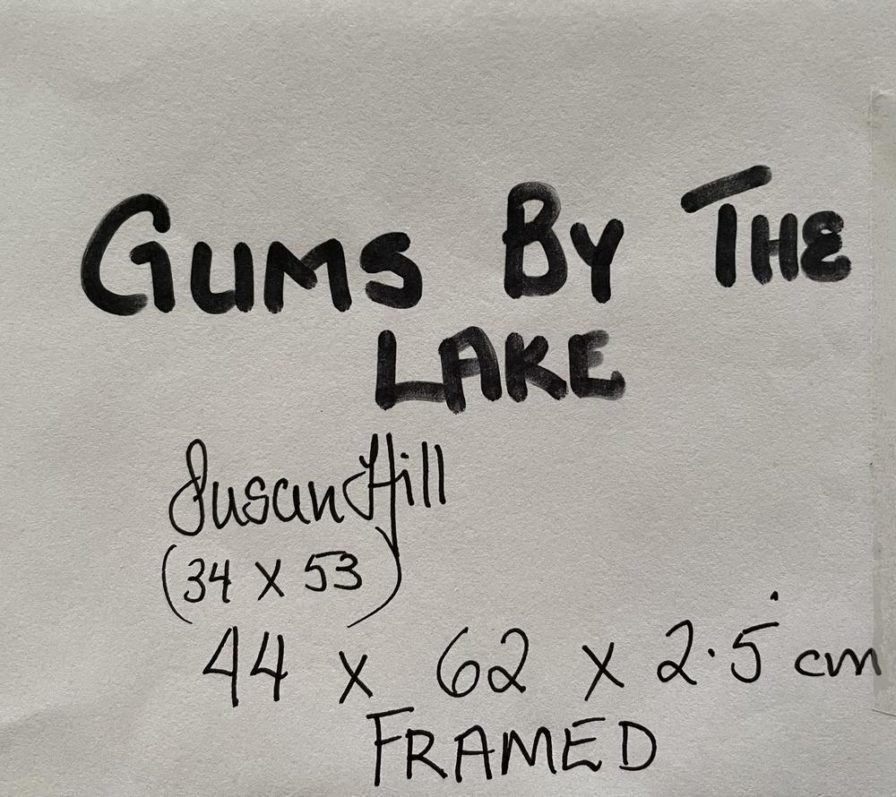 GUMS BY THE
LAKE
Susan Hill
(34 X 53)
44 x 62 x 2.5 cm
FRAMED